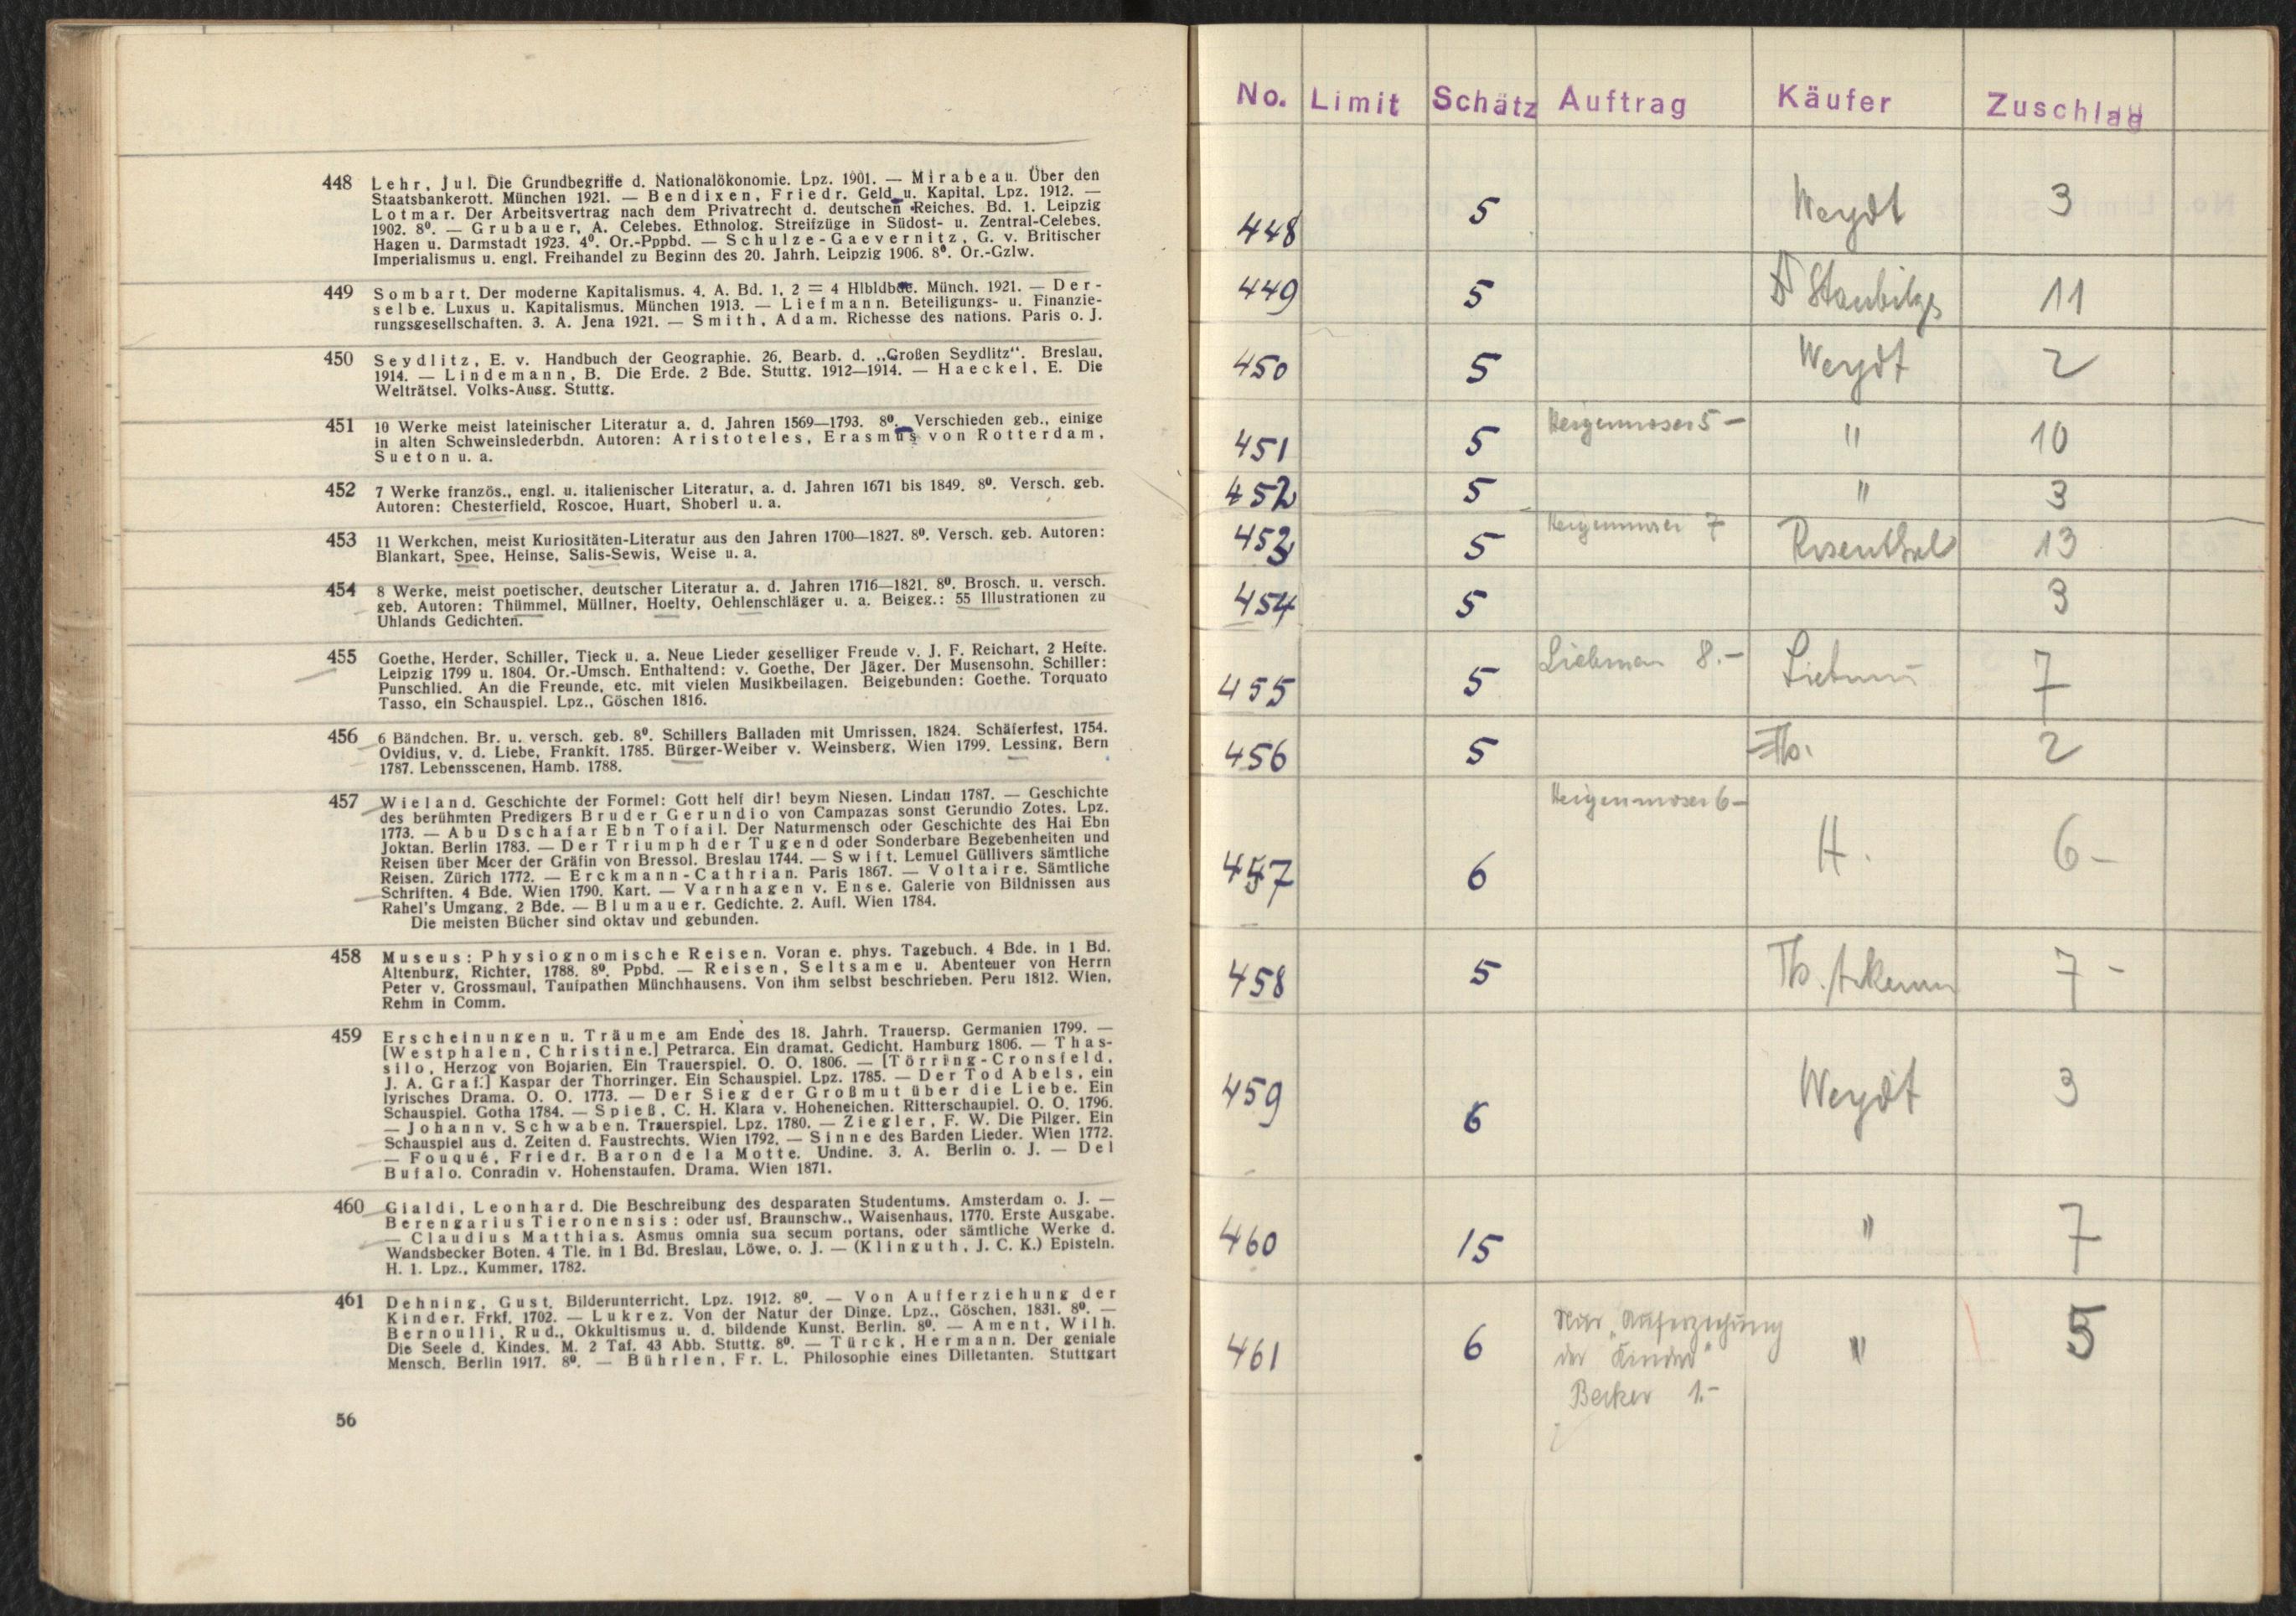 448 Lehr, Jul. Die Grundbegriffe d. Nationalökonomie. Lpz. 1901. — Mirabeau. Über den
Staatsbankerott. München 1921. — Bendixen, Friedr. Geld u. Kapital. Lpz. 1912. —
Lotmar. Der Arbeitsvertrag nach dem Privatrecht d. deutschen Reiches. Bd. 1. Leipzig
1902. 8⁰. — Grubauer, A. Celebes. Ethnolog. Streifzüge in Südost- u. Zentral-Celebes.
Hagen u. Darmstadt 1923. 4⁰. Or.-Pppbd. — Schulze-Gaevernitz, G. v. Britischer
Imperialismus u. engl. Freihandel zu Beginn des 20. Jahrh. Leipzig 1906. 8⁰. Or.-Gzlw.
449 Sombart. Der moderne Kapitalismus. 4. A. Bd. 1, 2 = 4 Hlbldbde. Münch. 1921. — Der-
selbe. Luxus u. Kapitalismus. München 1913. — Liefmann. Beteiligungs- u. Finanzie-
rungsgesellschaften. 3. A. Jena 1921. — Smith, Adam. Richesse des nations. Paris o. J.
450 Seydlitz, E. v. Handbuch der Geographie. 26. Bearb. d. „Großen Seydlitz“. Breslau,
1914. — Lindemann, B. Die Erde. 2 Bde. Stuttg. 1912—1914. — Haeckel, E. Die
Welträtsel. Volks-Ausg. Stuttg.
451 10 Werke meist lateinischer Literatur a. d. Jahren 1569—1793. 8⁰. Verschieden geb., einige
in alten Schweinslederbdn. Autoren: Aristoteles, Erasmus von Rotterdam,
Sueton u. a.
452 7 Werke französ., engl. u. italienischer Literatur, a. d. Jahren 1671 bis 1849. 8⁰. Versch. geb.
Autoren: Chesterfield, Roscoe, Huart, Shoberl u. a.
453 11 Werkchen, meist Kuriositäten-Literatur aus den Jahren 1700—1827. 8⁰. Versch. geb. Autoren:
Blankart, Spee, Heinse, Salis-Sewis, Weise u. a.
454 8 Werke, meist poetischer, deutscher Literatur a. d. Jahren 1716—1821. 8⁰. Brosch. u. versch.
geb. Autoren: Thümmel, Müllner, Hoelty, Oehlenschläger u. a. Beigeg.: 55 Illustrationen zu
Uhlands Gedichten.
455 Goethe, Herder, Schiller, Tieck u. a. Neue Lieder geselliger Freude v. J. F. Reichart, 2 Hefte.
Leipzig 1799 u. 1804. Or.-Umsch. Enthaltend: v. Goethe, Der Jäger. Der Musensohn. Schiller:
Punschlied. An die Freunde, etc. mit vielen Musikbeilagen. Beigebunden: Goethe. Torquato
Tasso, ein Schauspiel. Lpz., Göschen 1816.
456 6 Bändchen. Br. u. versch. geb. 8⁰. Schillers Balladen mit Umrissen, 1824. Schäferfest, 1754.
Ovidius, v. d. Liebe, Frankft. 1785. Bürger-Weiber v. Weinsberg, Wien 1799. Lessing, Bern
1787. Lebensscenen, Hamb. 1788.
457 Wieland. Geschichte der Formel: Gott helf dir! beym Niesen. Lindau 1787. — Geschichte
des berühmten Predigers Bruder Gerundio von Campazas sonst Gerundio Zotes. Lpz.
1773. — Abu Dschafar Ebn Tofail. Der Naturmensch oder Geschichte des Hai Ebn
Joktan. Berlin 1783. — Der Triumph der Tugend oder Sonderbare Begebenheiten und
Reisen über Meer der Gräfin von Bressol. Breslau 1744. — Swift. Lemuel Güllivers sämtliche
Reisen. Zürich 1772. — Erckmann-Cathrian. Paris 1867. — Voltaire. Sämtliche
Schriften. 4 Bde. Wien 1790. Kart. — Varnhagen v. Ense. Galerie von Bildnissen aus
Rahel's Umgang. 2 Bde. — Blumauer. Gedichte. 2. Aufl. Wien 1784.
Die meisten Bücher sind oktav und gebunden.
458 Museus: Physiognomische Reisen. Voran e. phys. Tagebuch. 4 Bde. in 1 Bd.
Altenburg, Richter, 1788. 8⁰. Ppbd. — Reisen, Seltsame u. Abenteuer von Herrn
Peter v. Grossmaul, Taufpathen Münchhausens. Von ihm selbst beschrieben. Peru 1812. Wien,
Rehm in Comm.
459 Erscheinungen u. Träume am Ende des 18. Jahrh. Trauersp. Germanien 1799. —
[Westphalen, Christine.] Petrarca. Ein dramat. Gedicht. Hamburg 1806. — Thas-
silo, Herzog von Bojarien. Ein Trauerspiel. O. O. 1806. — [Törring-Cronsfeld,
J. A. Graf.] Kaspar der Thorringer. Ein Schauspiel. Lpz. 1785. — Der Tod Abels, ein
lyrisches Drama. O. O. 1773. — Der Sieg der Großmut über die Liebe. Ein
Schauspiel. Gotha 1784. — Spieß, C. H. Klara v. Hoheneichen. Ritterschaupiel. O. O. 1796.
— Johann v. Schwaben. Trauerspiel. Lpz. 1780. — Ziegler, F. W. Die Pilger. Ein
Schauspiel aus d. Zeiten d. Faustrechts. Wien 1792. — Sinne des Barden Lieder. Wien 1772.
— Fouqué, Friedr. Baron de la Motte. Undine. 3. A. Berlin o. J. — Del
Bufalo. Conradin v. Hohenstaufen. Drama. Wien 1871.
460 Gialdi, Leonhard. Die Beschreibung des desparaten Studentums. Amsterdam o. J. —
Berengarius Tieronensis: oder usf. Braunschw., Waisenhaus, 1770. Erste Ausgabe.
— Claudius Matthias. Asmus omnia sua secum portans, oder sämtliche Werke d.
Wandsbecker Boten. 4 Tle. in 1 Bd. Breslau, Löwe, o. J. — (Klinguth, J. C. K.) Episteln.
H. 1. Lpz., Kummer, 1782.
461 Dehning, Gust. Bilderunterricht. Lpz. 1912. 8⁰. — Von Aufferziehung der
Kinder. Frkf. 1702. — Lukrez. Von der Natur der Dinge. Lpz., Göschen, 1831. 8⁰. —
Bernoulli, Rud., Okkultismus u. d. bildende Kunst. Berlin. 8⁰. — Ament, Wilh.
Die Seele d. Kindes. M. 2 Taf. 43 Abb. Stuttg. 8⁰. — Türck, Hermann. Der geniale
Mensch. Berlin 1917. 8⁰. — Bührlen, Fr. L. Philosophie eines Dilletanten. Stuttgart
56
No. Limit Schätz Auftrag Käufer Zuschlag
448 5 Weydt 3
449 5 11
450 5 Weydt 2
451 5 Heigenmoser 5 — " 10
452 5 " 3
453 5 Heigenmoser 7 Rosenthal 13
454 5 3
455 5 Liebman 8.— 7
456 5 Th. 2
457 6 Heigenmoser 6— H. 6—
458 5 Th. 7 -
459 6 Weydt 3
460 15 " 7
461 6 Nur „Auferziehung " 5
der Kinder"
Becker 1.—